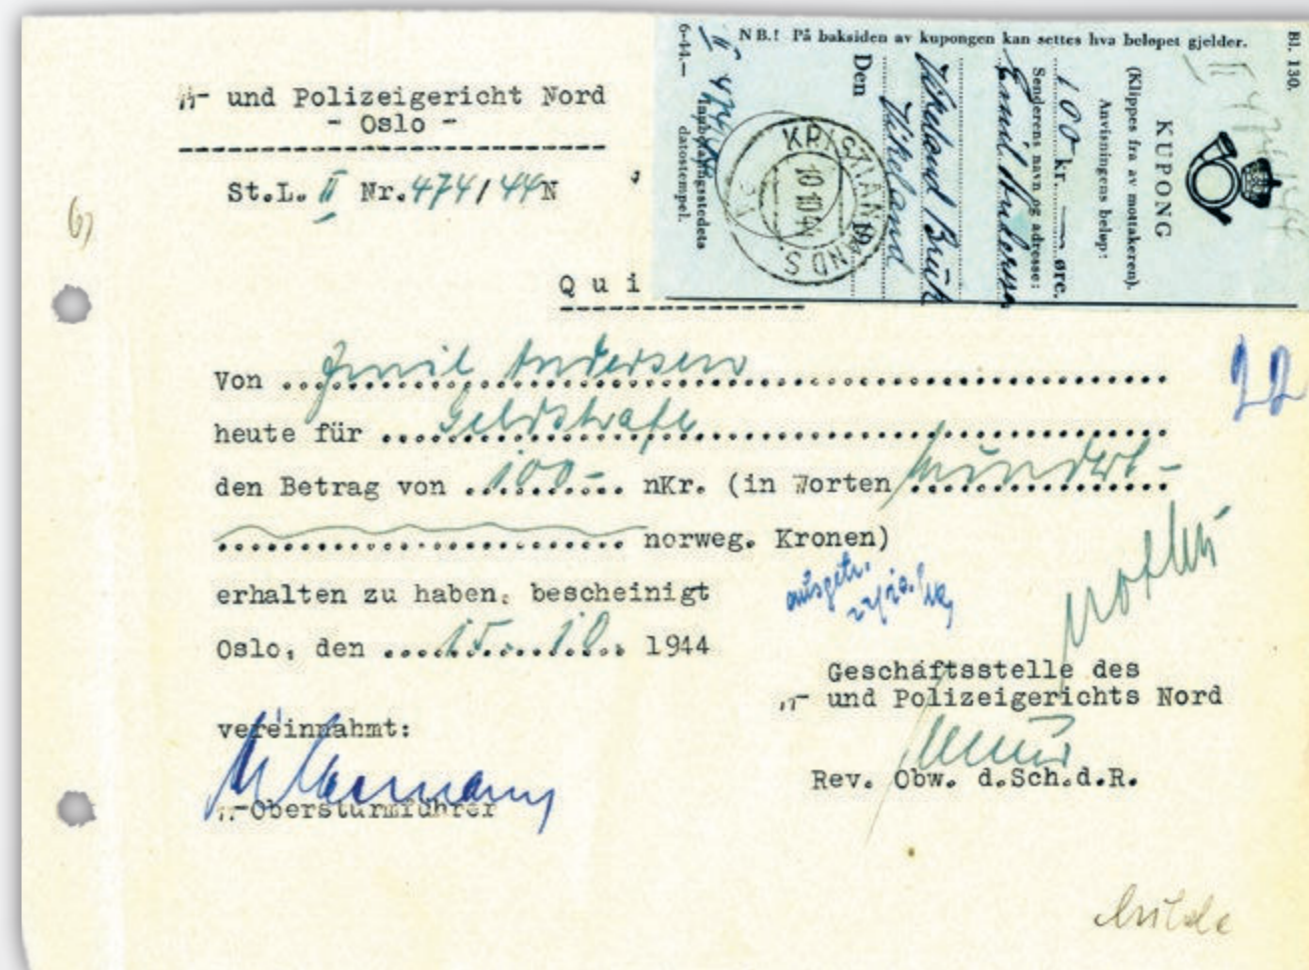 - und Polizeigericht Nord
- Oslo -
St.L. II Nr. 474/44 N
6)
Qui
NB.! På baksiden av kupongen kan settes hva beløpet gjelder.
Bl. 130.
KUPONG
(Klippes fra av mottakeren).
Anvisningens beløp:
100 kr. — øre.
Senderens navn og adresse:
Emil Andersen
Vikeland Bruk
Vikeland
Den
19
KRISTIANSAND S
10 10 44
Innbetalingsstedets
datostempel.
6-44.—
II 474/44
II 474/44
22
Von Emil Andersen
heute für Geldstrafe
den Betrag von 100.- nKr. (in Worten hundert-
norweg. Kronen)
erhalten zu haben, bescheinigt
Oslo, den 15. 10. 1944
ausgetr.
Geschäftsstelle des
- und Polizeigerichts Nord
vereinnahmt:
Rev. Obw. d.Sch.d.R.
-Obersturmführer